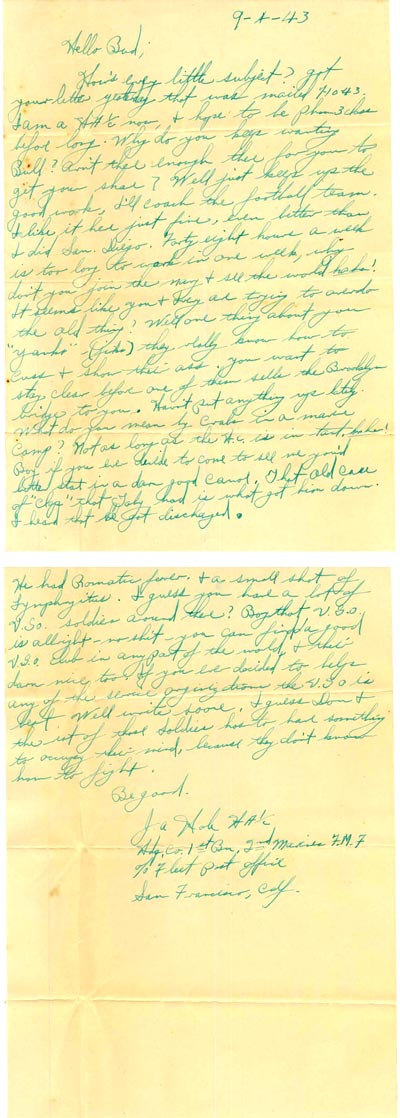 9-X-43
Hello Bud;
How's every little subject? got
your letter yesterday that was mailed
I am a HA1c now, & hope to be Phm3class
before long. Why do you keep wanting
Bull? Ain't there enough there for you to
get your share? Well just keep up the
good work, I'll coach the football team.
I like it here just fine, even better than
I did San. Diego. Forty eight hours a week
is too long to work in one week, why
don't you join the navy & see the world haha!
It seems like you & are trying to overdo
the old thing? Well one thing about your
"yanks" they really know how to
cuss & show their ass, you want to
stay clear before one of them sells the Brooklyn
Bridge to you. Havn't put anything up lately.
What do you mean by in a marine
Camp? Not as long as the H.C. is in haha!
Boy if you ever decide to come to see me you'd
better start in a dam good canoe. That old case
of that had is what got him down.
I heard that he got discharged.
He had Romatic fever. & a small shot of
I guess you have a lot of
U.S.O. soldiers around there? Boy that U.S.O.
is allright - no shit - you can find a good
U.S.O. Club in any part of the world, & their
dam nice too. If you ever decided to help
any of the service the U.S.O is
best. Well write soone, I guess Don &
the rest of those Soldiers has to have something
to occupy their mind, because they don't know
how to fight.
Be good.
J.a. HA1c
Hdq. Co. 1st Bn, 2nd Marines F.M.F
c/o Fleet Post Office
San Francisco, Calf.